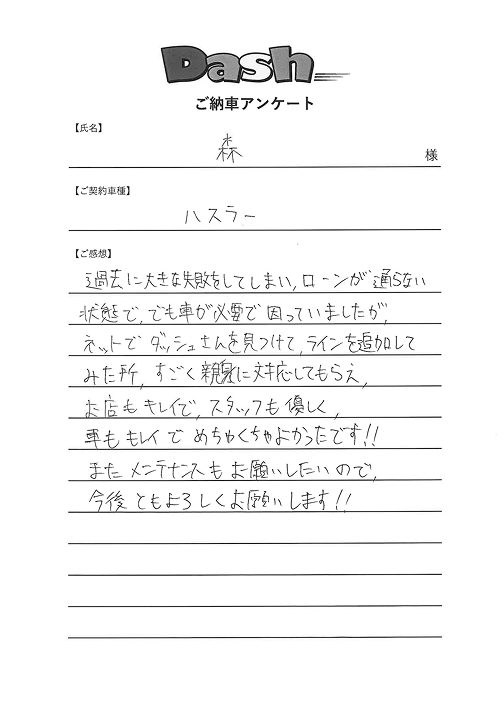 Dash
ご納車アンケート
【氏名】
森 様
【ご契約車種】
ハスラー
【ご感想】
過去に大きな失敗をしてしまい、ローンが通らない
状態で、でも車が必要で困っていましたが、
ネットでダッシュさんを見つけて、ラインを追加して
みた所、すごく親身に対応してもらえ、
お店もキレイで、スタッフも優しく、
車もキレイでめちゃくちゃよかったです!!
またメンテナンスもお願いしたいので、
今後ともよろしくお願いします!!